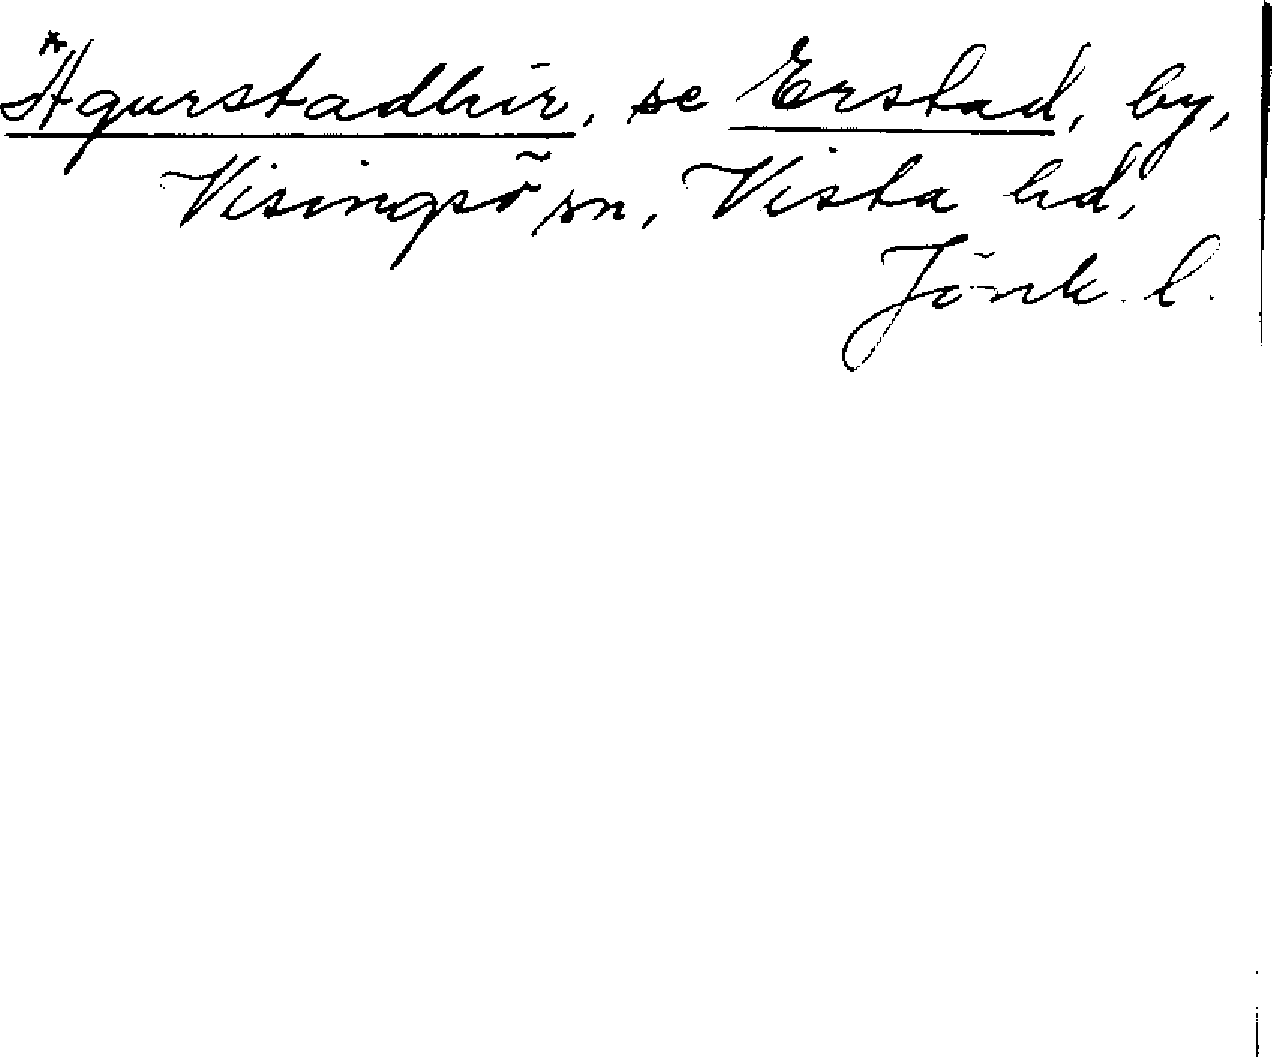 *Agurstadhir, se Erstad, by,
Visingsö sn, Vista hd,
Jönk. l.